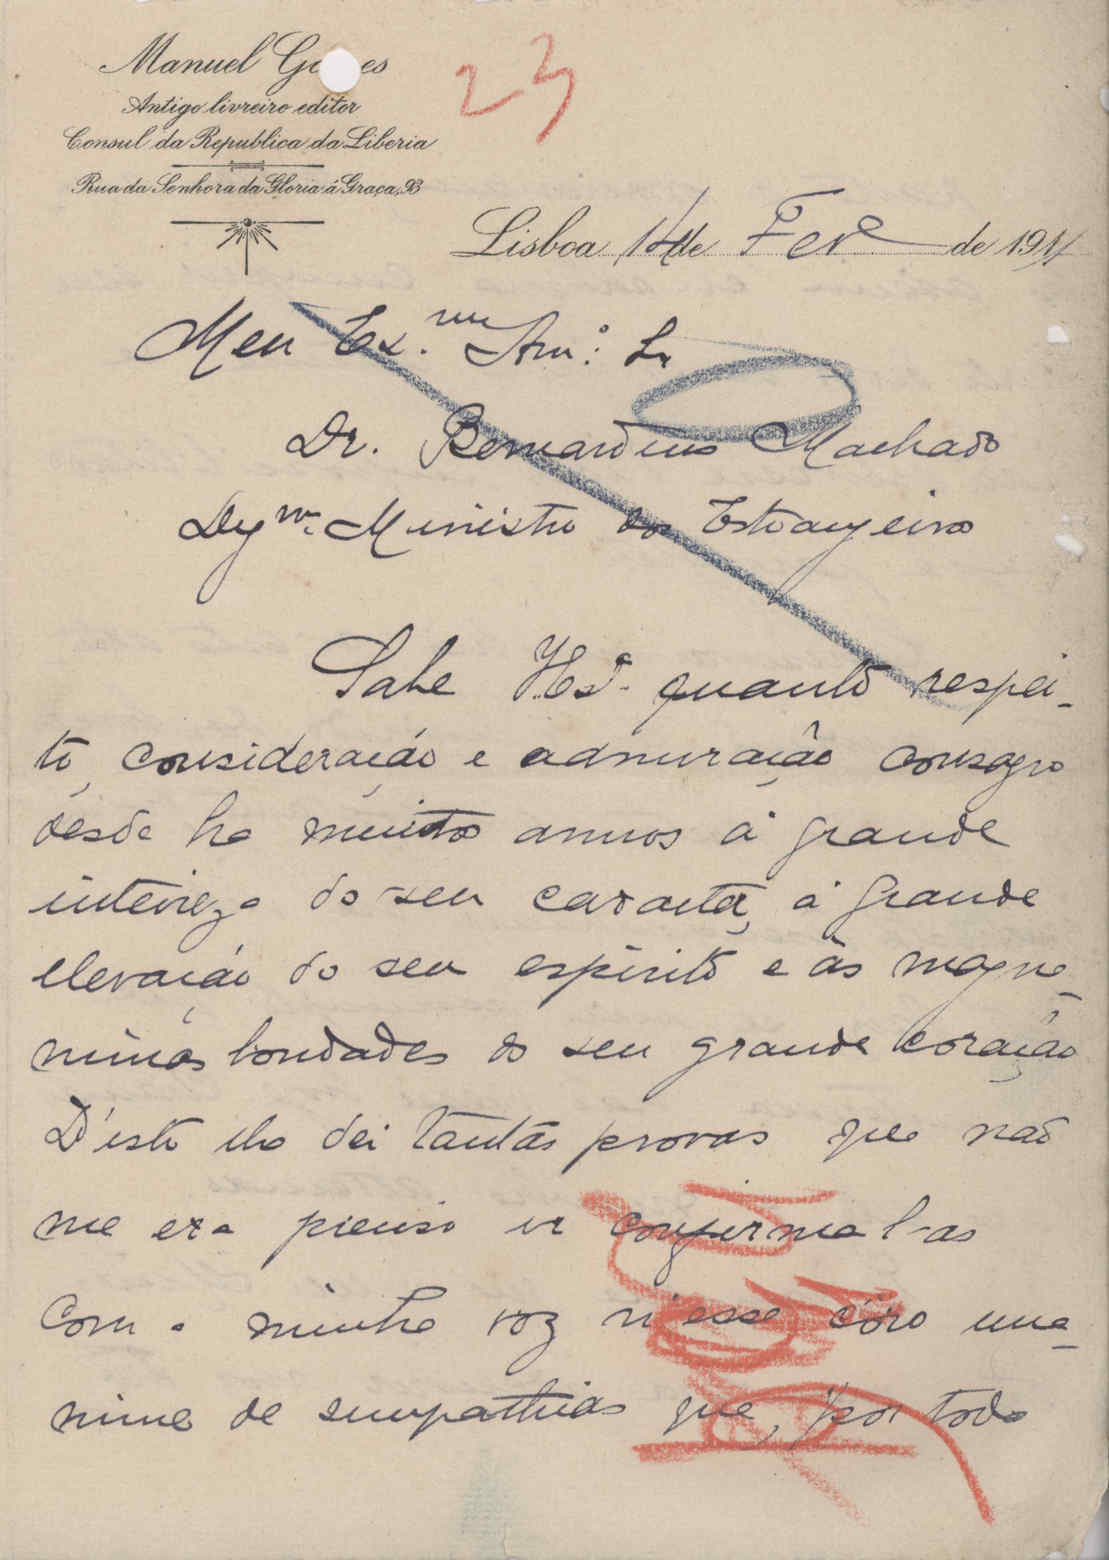 Manuel Go es
Antigo livreiro editor
Consul da Republica da Liberia
Rua da Senhora da Gloria á Graça, 93
23
Lisboa 14 de Fevº de 1911
Meu Ex.mo Am.º Sr
Dr. Bernardino Machado
Dig.mo Ministro dos Estrangeiros
Sabe V.Exª quanto respei-
to, consideração e admiração consagro
desde ha muitos annos á grande
inteireza do seu caracter, á grande
elevação do seu espirito e ás magna-
nimas bondades do seu grande coração
D'isto lhe dei tantas provas que não
me era preciso vir confirmal-as
com a minha voz n'esse côro una-
nime de sympathias que, por todo